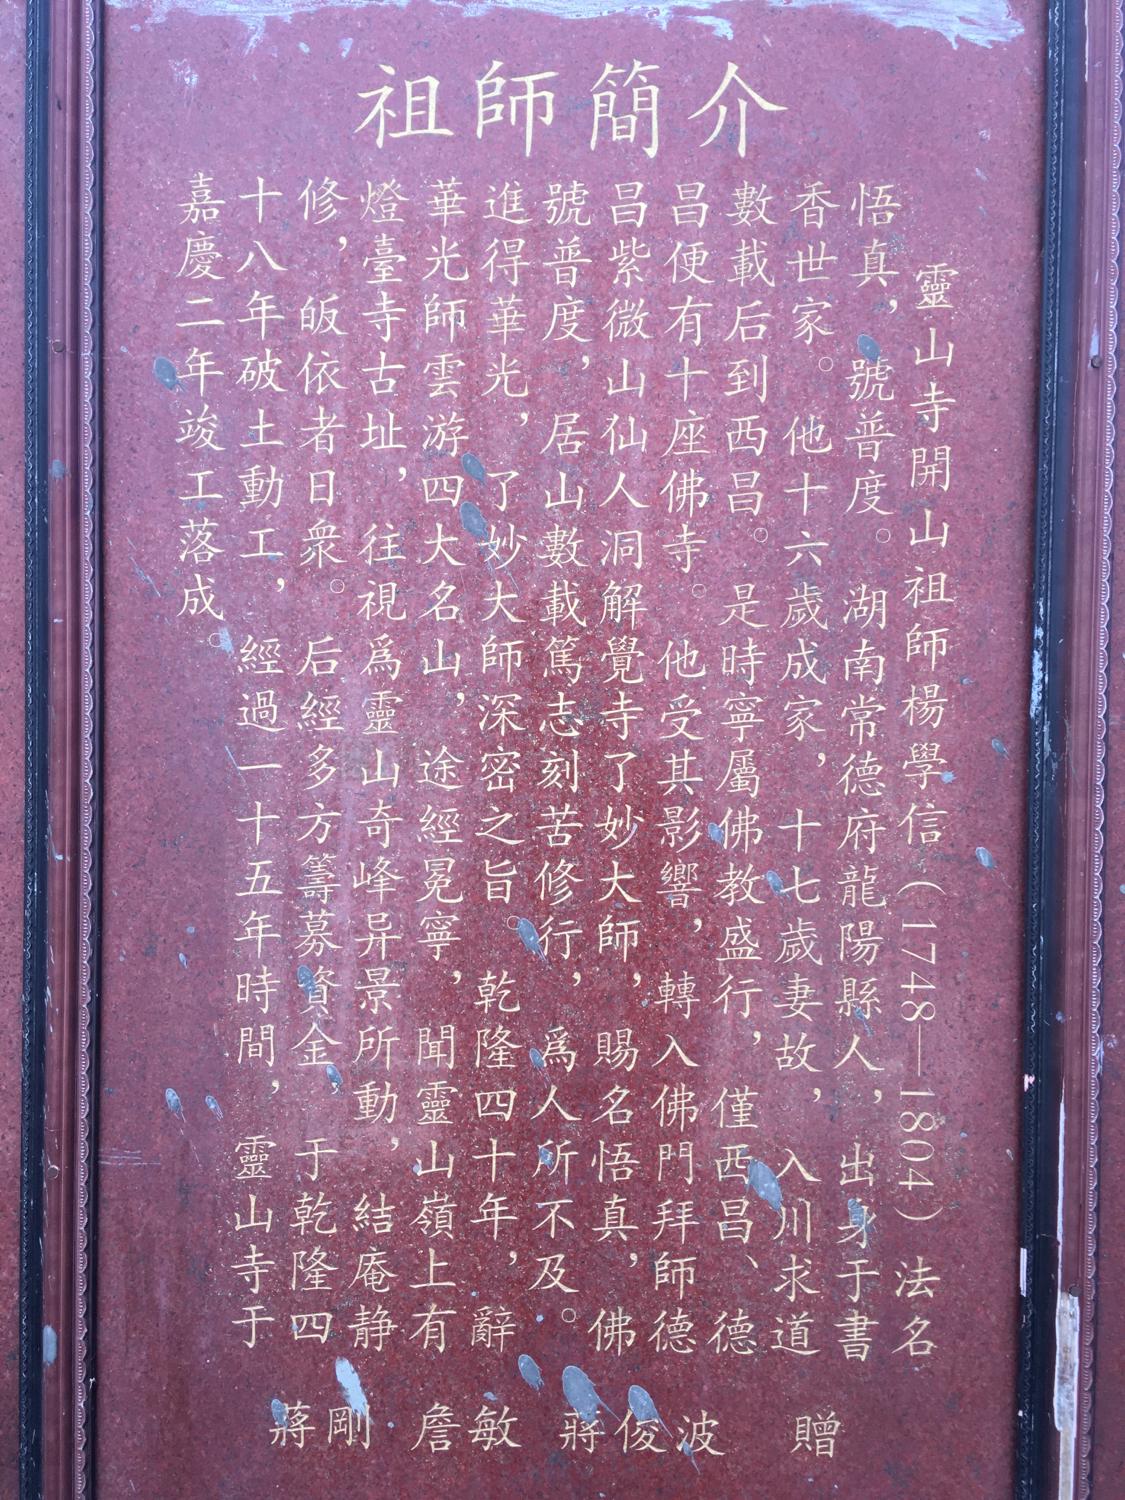 祖師簡介
靈山寺開山祖師楊學信（1748—1804）法名
悟真，號普度。湖南常德府龍陽縣人，出身于書
香世家。他十六歲成家，十七歲妻故，入川求道
數載后到西昌。是時寧屬佛教盛行，僅西昌、德
昌便有十座佛寺。他受其影響，轉入佛門拜師德
昌紫微山仙人洞解覺寺了妙大師，賜名悟真，佛
號普度，居山數載篤志刻苦修行，爲人所不及。
進得華光，了妙大師深密之旨。乾隆四十年，辭
華光師雲游四大名山，途經冕寧，聞靈山嶺上有
燈臺寺古址，往視爲靈山奇峰异景所動，結庵静
修，皈依者日衆。后經多方籌募資金，于乾隆四
十八年破土動工，經過一十五年時間，靈山寺于
嘉慶二年竣工落成。
蔣剛 詹敏 蔣俊波 贈